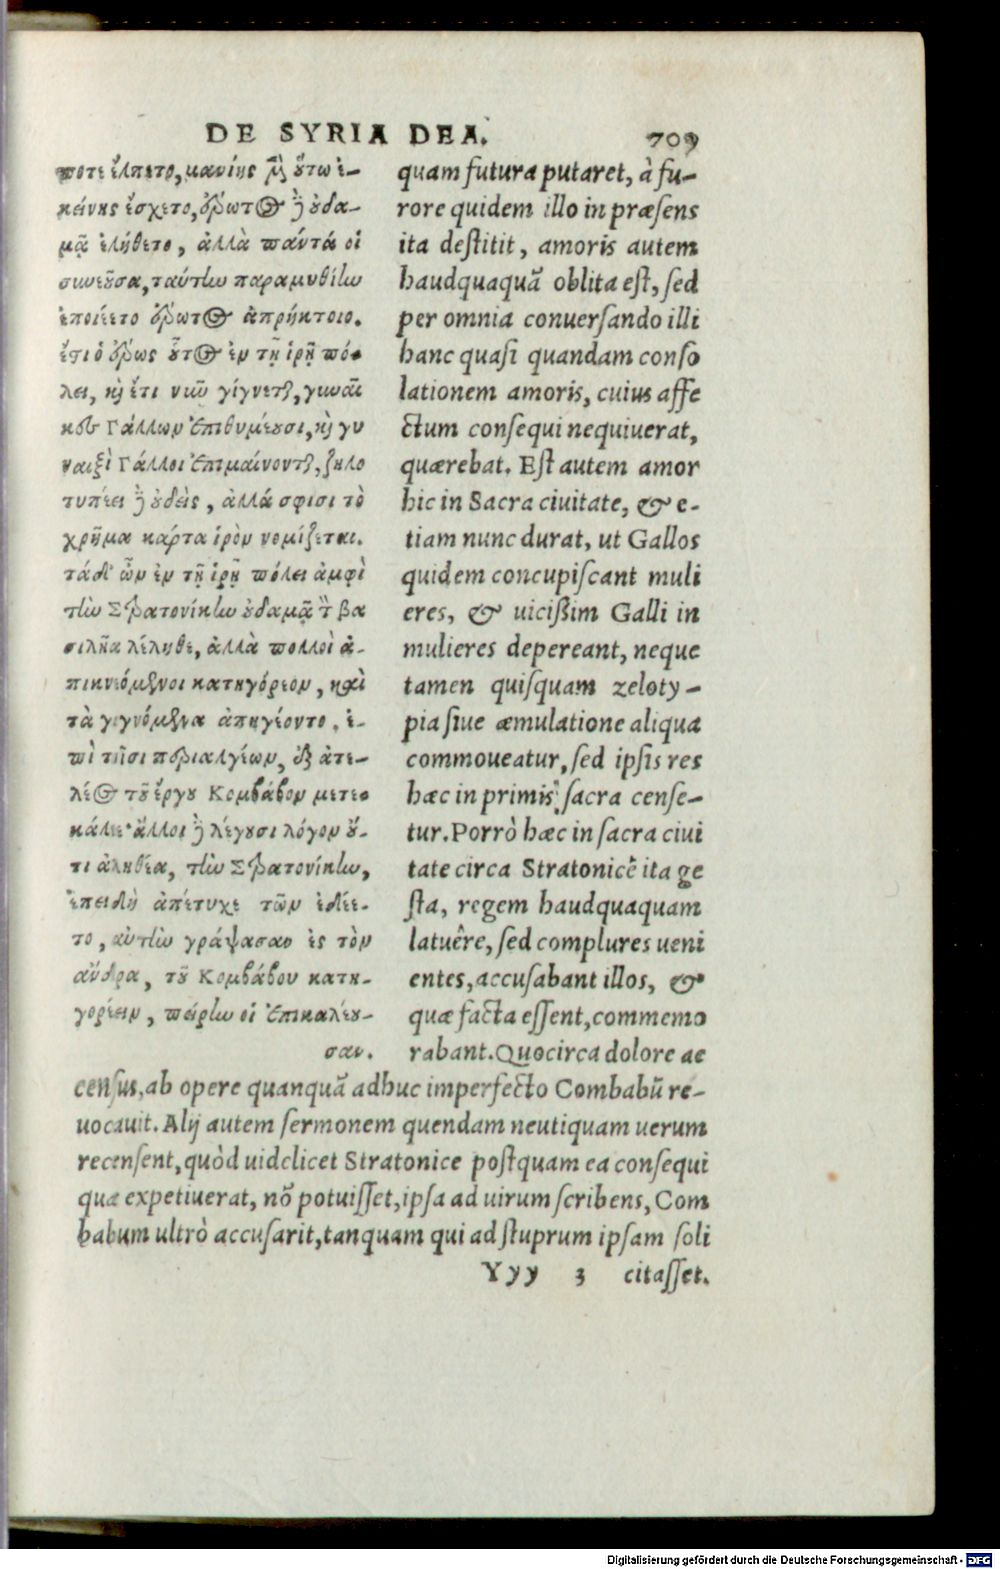 DE SYRIA DEA. 709
ποτε ἔλπετο, μανίης μὲν ὅυτω ἐ-
κείνης ἔσχετο, ἔρωτος δὲ ὀυδα-
μᾶ ἐλήθετο, ἀλλὰ πάντά οἱ
συνεοῦσα, ταύτην παραμυθίην
ἐποιέετο ἔρωτος ἀπρήκτοιο.
ἔστι ὁ ἔρως οὗτος ἐν τῇ ἱρῇ πό-
λει, καὶ ἔτι νῦν γίγνεται, γυναῖ
κες Γάλλων ἐπιθυμέουσι, καὶ γυ
ναιξὶ Γάλλοι ἐπιμαίνονται, ζηλο
τυπέει δὲ ὀυδεὶς, ἀλλά σφισι τὸ
χρῆμα κάρτα ἱρὸν νομίζεται.
τάδ' ὦν ἐν τῇ ἱρῇ πόλει ἀμφὶ
τὴν Στρατονίκην ὀυδαμᾶ τὸν βα
σιλῆα λέληθε, ἀλλὰ πολλοὶ ἀ-
πικνεόμενοι κατηγόρεον, καὶ
τὰ γιγνόμενα ἀπηγέοντο, ἐ-
πὶ τοῖσι περιαλγέων, ἐξ ἀτε-
λέος τοῦ ἔργου Κομβάβον μετε
κάλεε. ἄλλοι δὲ λέγουσι λόγον ὄυ-
τι ἀληθέα, τὴν Στρατονίκην,
ἐπειδὴ ἀπέτυχε τῶν ἐδέε-
το, αὐτὴν γράψασαν ἐς τὸν
ἄνδρα, τοῦ Κομβάβου κατη-
γορέειν, πείρην οἱ ἐπικαλέου-
σαν.
quam futura putaret, à fu-
rore quidem illo in præsens
ita destitit, amoris autem
haudquaquã oblita est, sed
per omnia conuersando illi
hanc quasi quandam conso
lationem amoris, cuius affe
ctum consequi nequiuerat,
quærebat. Est autem amor
hic in Sacra ciuitate, & e-
tiam nunc durat, ut Gallos
quidem concupiscant muli
eres, & uicißim Galli in
mulieres depereant, neque
tamen quisquam zeloty-
pia siue æmulatione aliqua
commoueatur, sed ipsis res
hæc in primis sacra cense-
tur. Porrò hæc in sacra ciui
tate circa Stratonicẽ ita ge
sta, regem haudquaquam
latuêre, sed complures ueni
entes, accusabant illos, &
quæ facta essent, commemo
rabant. Quocirca dolore ac
census, ab opere quanquã adhuc imperfecto Combabũ re-
uocauit. Alij autem sermonem quendam neutiquam uerum
recensent, quòd uidelicet Stratonice postquam ea consequi
quæ expetiuerat, nõ potuisset, ipsa ad uirum scribens, Com
babum ultrò accusarit, tanquam qui ad stuprum ipsam soli
Yyy 3 citasset.
Digitalisierung gefördert durch die Deutsche Forschungsgemeinschaft - DFG